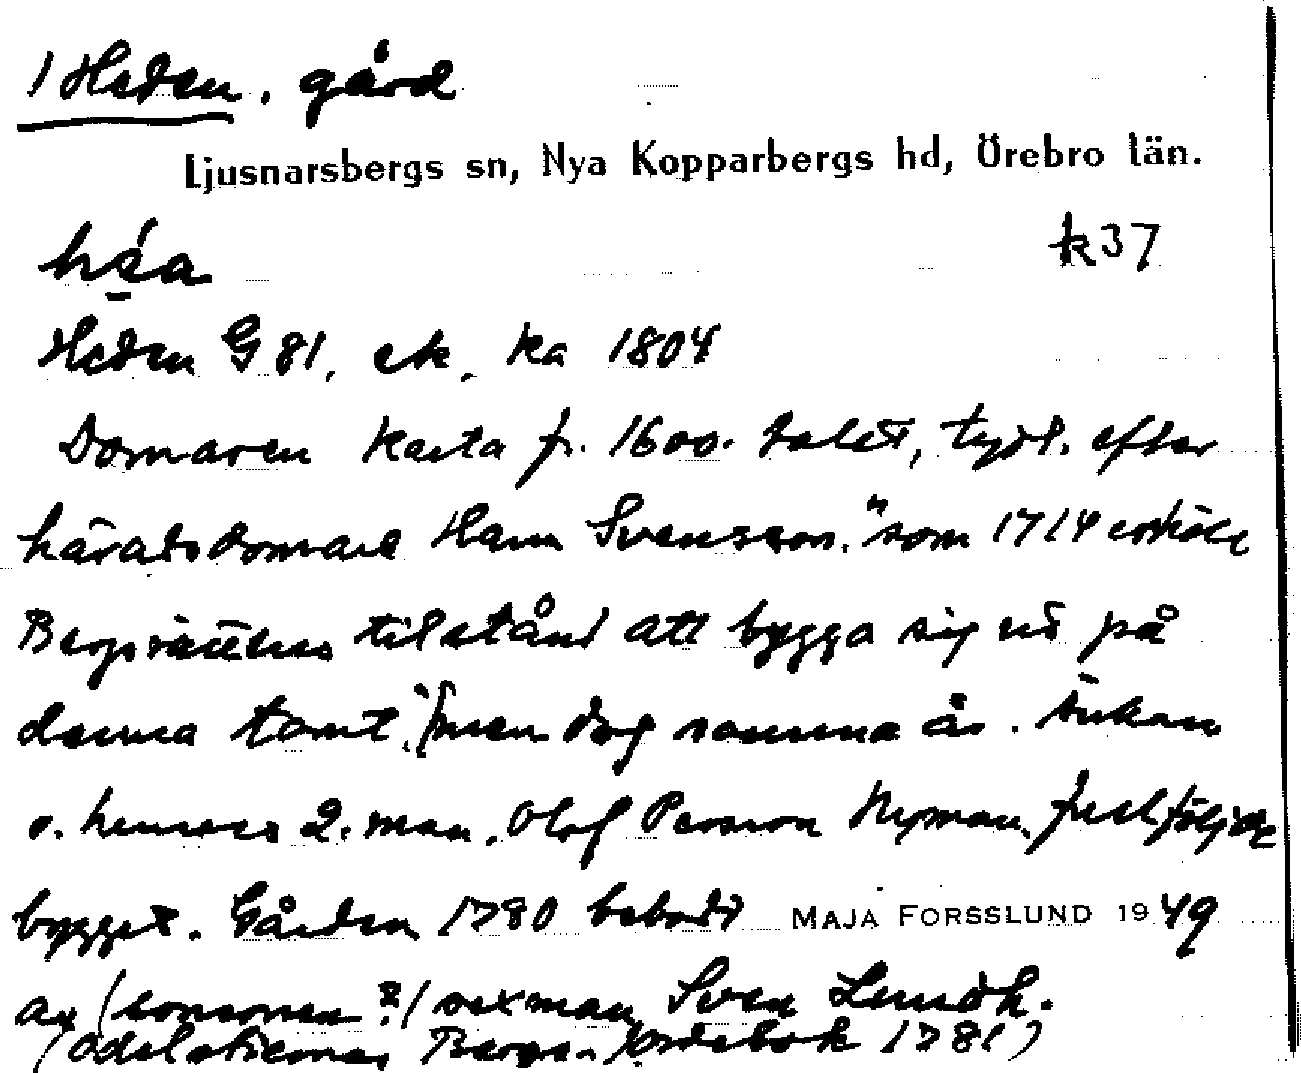 1 Heden. gård
Ljusnarsbergs sn, Nya Kopparbergs hd, Örebro län.
héa k37
Heden G 81. ek. ka 1804
Domaren karta fr. 1600-talet, tydl. efter
häradsdomare Hans Svensson. "som 1714 erhöll
Bergsrättens tilstånd att bygga sig ut på
denna tomt." (men dog samma år. Änkan
o. hennes 2. man, Olof Persson Nyman, fullföljde
bygget. Gården 1780 bebodd MAJA FORSSLUND 1949
av (sonsonen?) sexman Sven Lundh.
(Odelstiernas Bergs-Jordebok 1781)